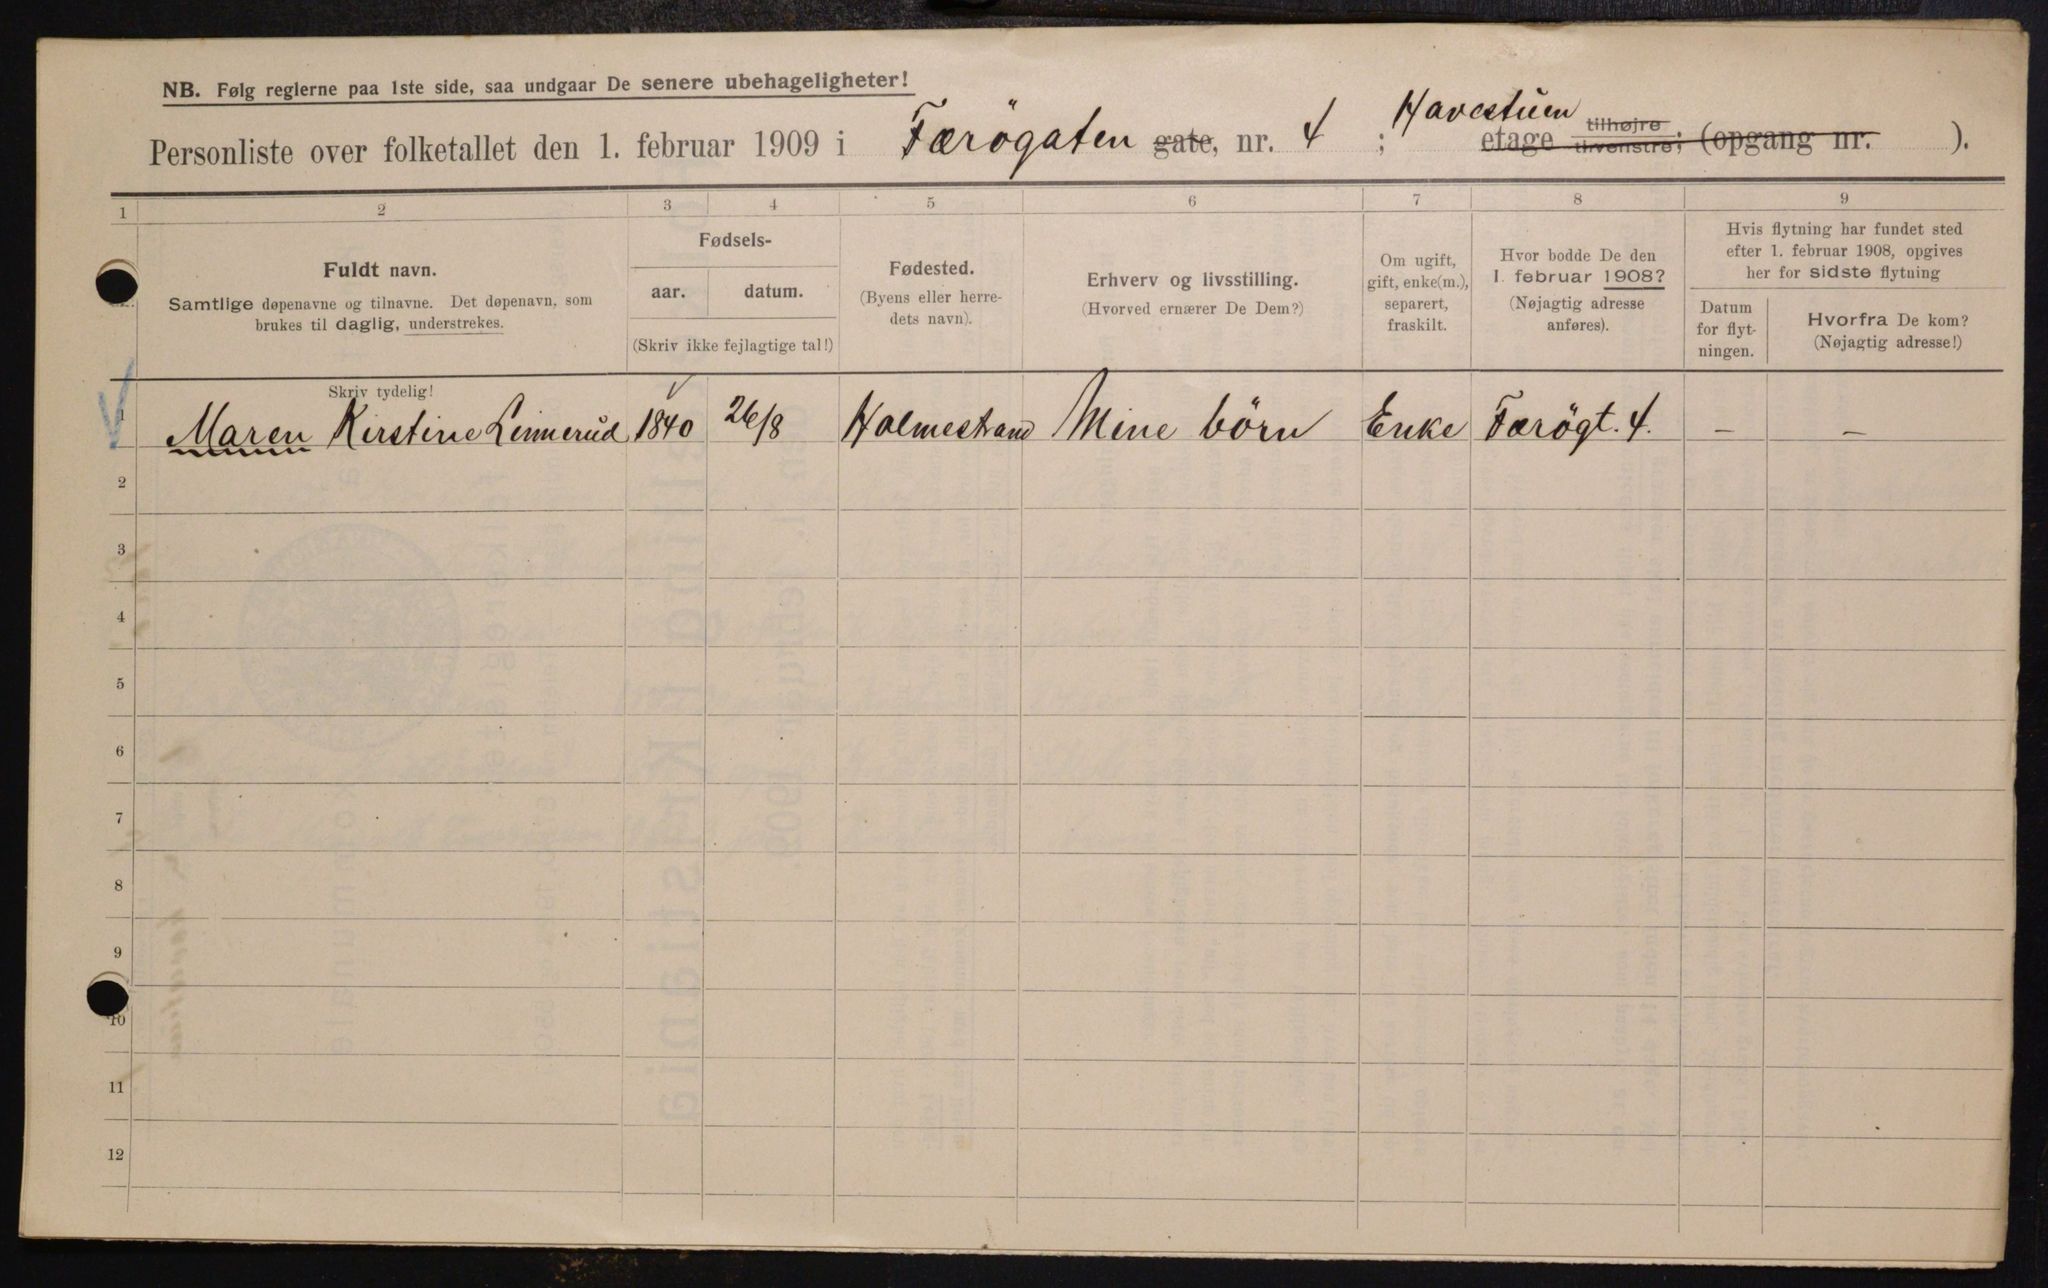 NB. Følg reglerne paa 1ste side, saa undgaar De senere ubehageligheter!
Personliste over folketallet den 1. februar 1909 i Færögaten gate, nr. 4 ; Havestuen etage tilhøjre tilvenstre; (opgang nr. ).
1 2 3 4 5 6 7 8 9
Fuldt navn.
Samtlige døpenavne og tilnavne. Det døpenavn, som
brukes til daglig, understrekes.
Fødsels-
aar. datum.
(Skriv ikke fejlagtige tal!)
Fødested.
(Byens eller herre-
dets navn).
Erhverv og livsstilling.
(Hvorved ernærer De Dem?)
Om ugift,
gift, enke(m.),
separert,
fraskilt.
Hvor bodde De den
1. februar 1908?
(Nøjagtig adresse
anføres).
Hvis flytning har fundet sted
efter 1. februar 1908, opgives
her for sidste flytning
Datum
for flyt-
ningen.
Hvorfra De kom?
(Nøjagtig adresse!)
Skriv tydelig!
1 Maren Kirstine Linnerud 1840 26/8 Holmestrand Mine børn Enke Færögt. 4. — —
2
3
4
5
6
7
8
9
10
11
12